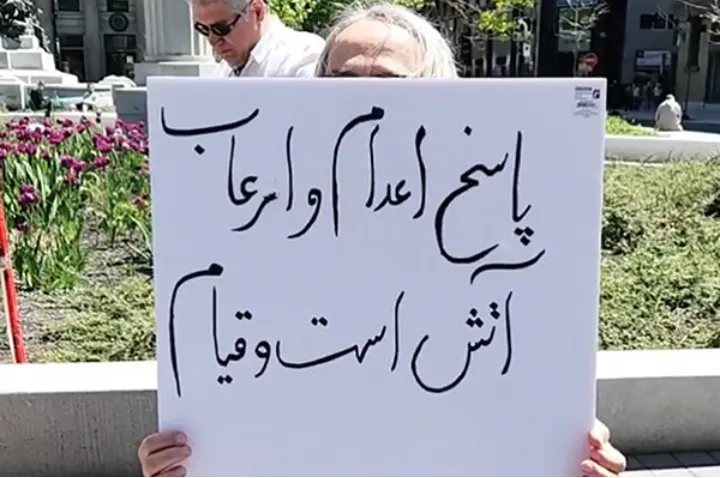 پاسخ اعدام و ارعاب
آتش است و قیام